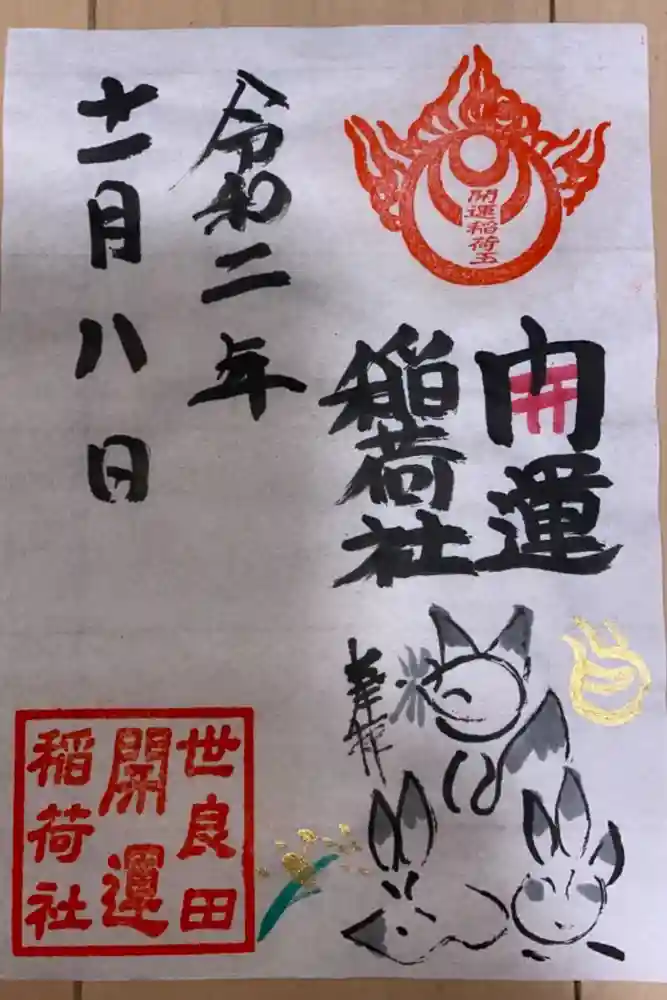 開運稲荷玉
開運
稲荷社
奉拝
令和二年
十一月八日
世良田
開運
稲荷社